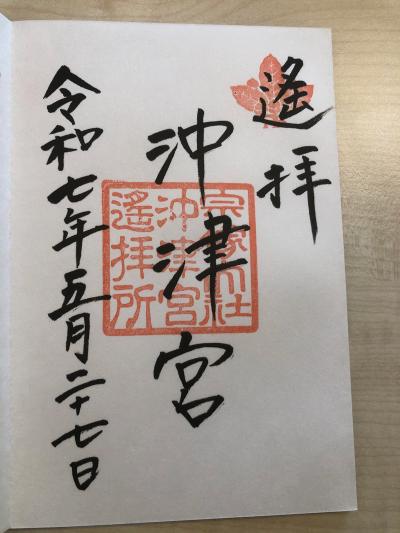 遙拝
沖津宮
令和七年五月二十七日
宗像大社
沖津宮
遥拝所